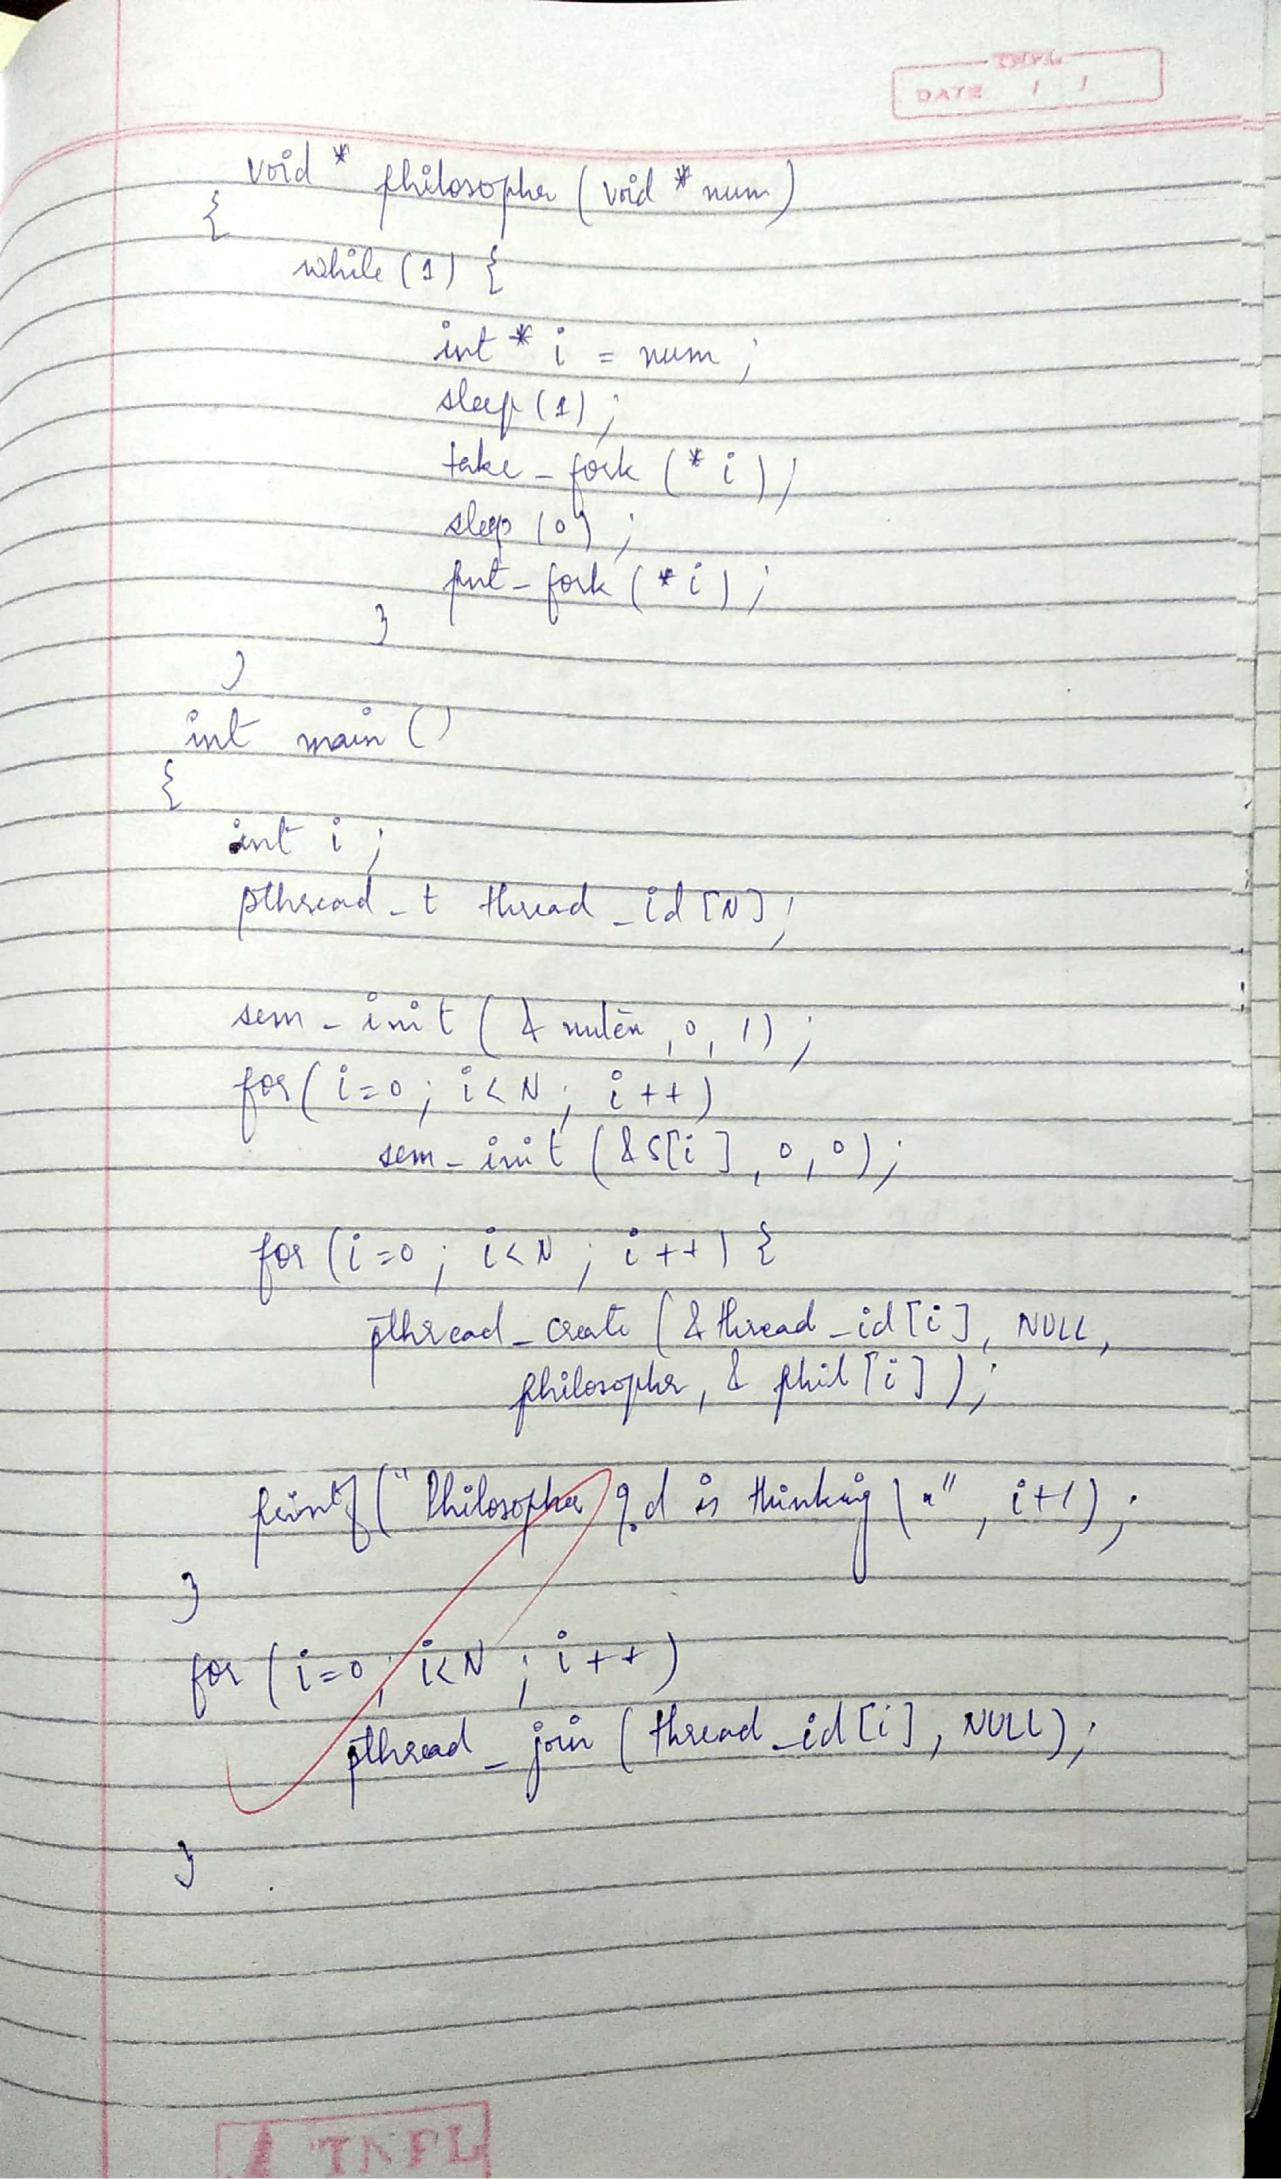 TNPL
DATE / /
void * philosopher (void * num)
{
while (1) {
int * i = num ;
sleep (1) ;
take_fork (* i) ;
sleep (0) ;
put_fork (* i) ;
}
}
int main ()
{
int i ;
pthread_t thread_id [N] ;
sem_init (& mutex, 0, 1) ;
for (i=0 ; i<N ; i++)
sem_init (&S[i], 0, 0) ;
for (i=0 ; i<N ; i++) {
pthread_create (& thread_id [i], NULL,
philosopher, & phil [i]) ;
printf ("Philosopher %d is thinking \n", i+1) ;
}
for (i=0 ; i<N ; i++)
pthread_join (thread_id [i], NULL) ;
}
TNPL